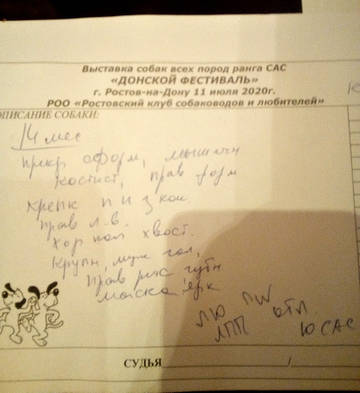 Выставка собак всех пород ранга САС
«ДОНСКОЙ ФЕСТИВАЛЬ»
г. Ростов-на-Дону 11 июля 2020г.
РОО «Ростовский клуб собаководов и любителей»
ОПИСАНИЕ СОБАКИ:
14 мес
прекр оформ, мышечн
костист, прав форм
крепк п и з кон.
прав л.в.
хор пол хвост.
крупн, муж гол,
прав
маска ярк
ЛЮ PW отл
ЛПП ЮСАС
СУДЬЯ / /